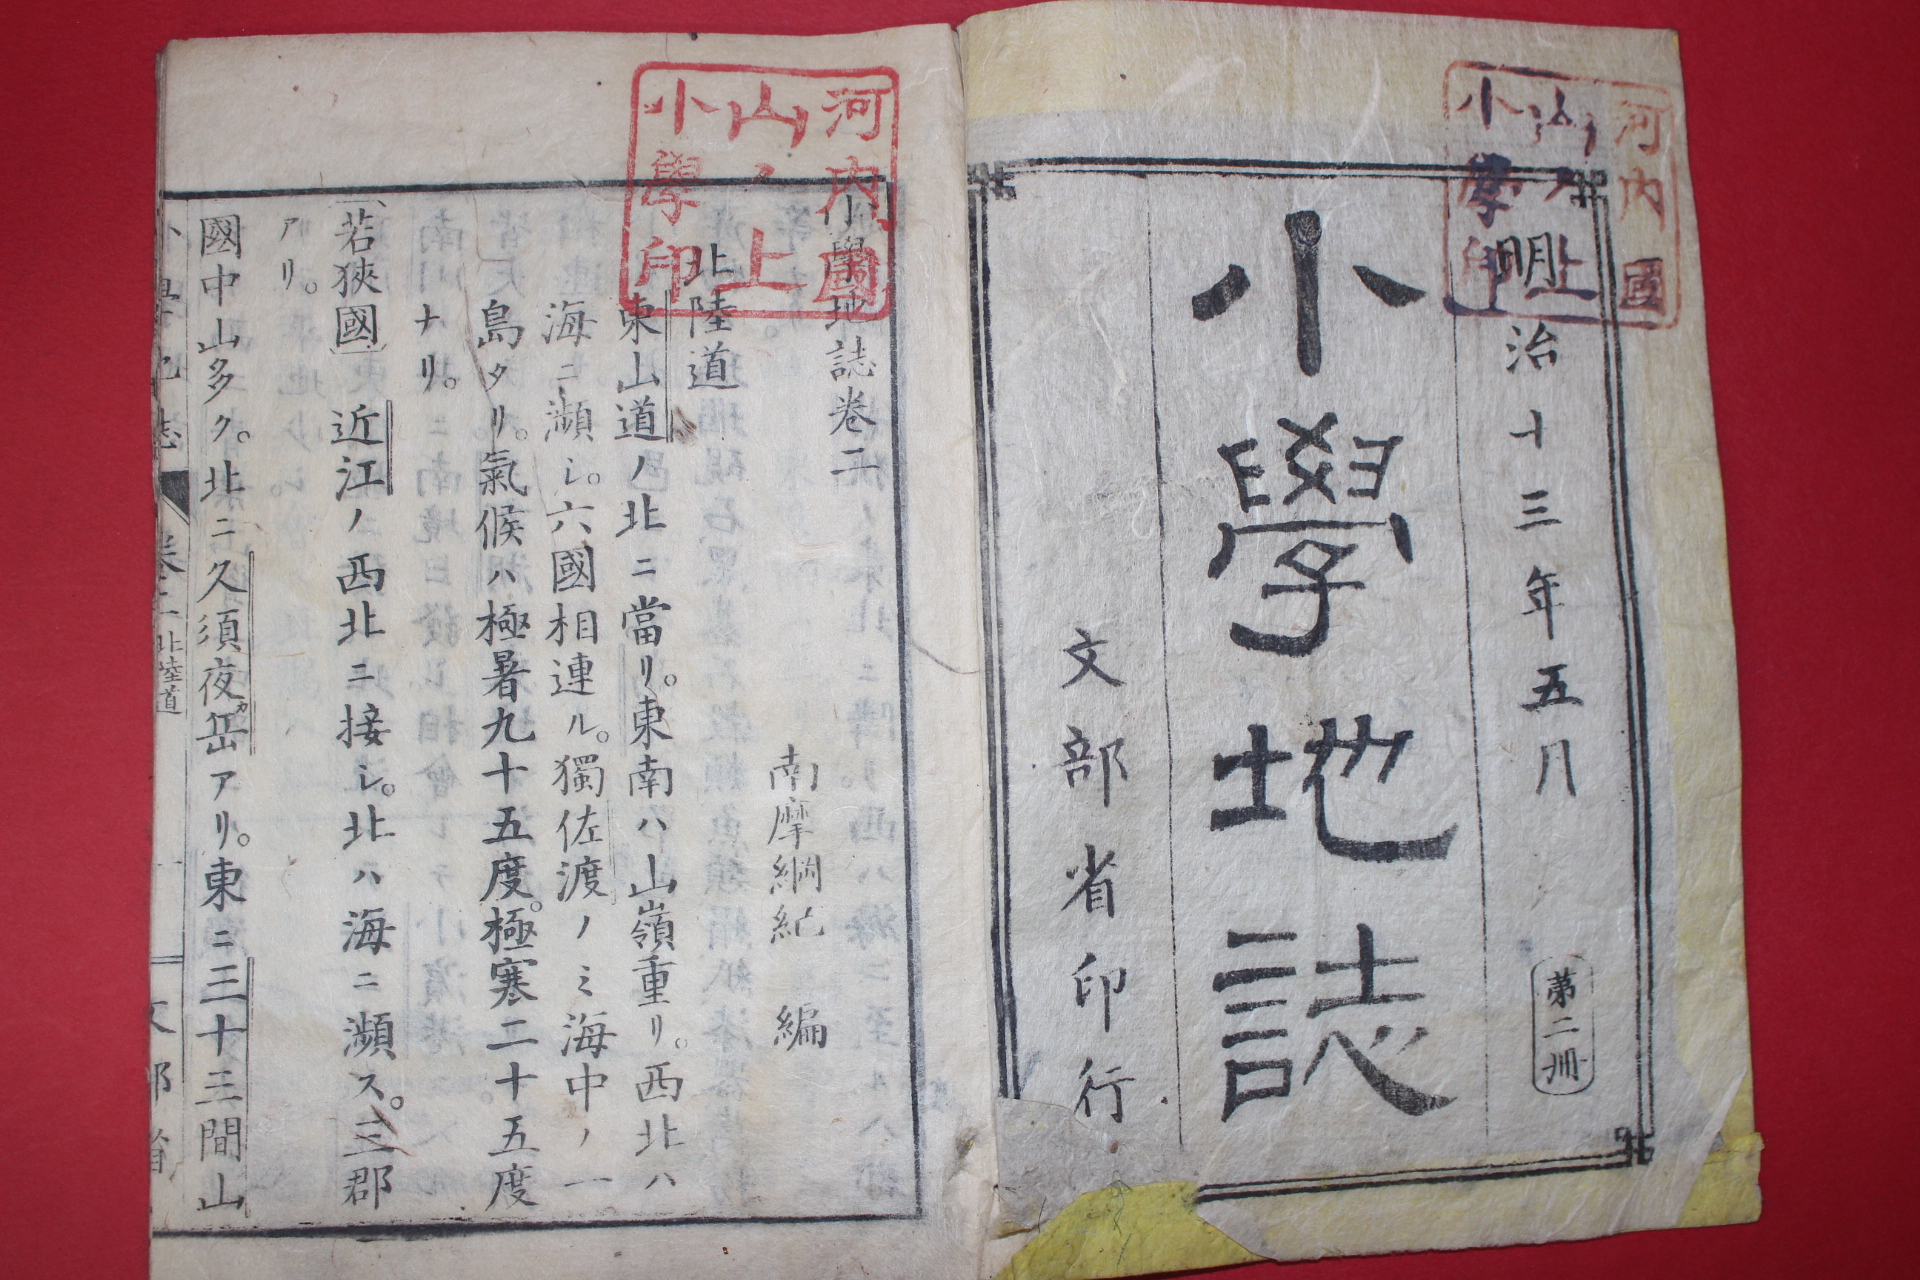 明治十三年五月
第二冊
小學地誌
文部省印行
河内國
山ノ上
小學印
小學地誌卷二
南摩綱紀 編
北陸道
東山道ノ北ニ當リ。東南ハ山嶺重リ。西北ハ
海ニ瀕シ。六國相連ル。獨佐渡ノミ海中ノ一
島タリ。氣候ハ極暑九十五度。極寒二十五度
ナリ。
若狹國 近江ノ西北ニ接シ。北ハ海ニ瀕ス。三郡
アリ。
國中山多ク。北ニ久須夜岳アリ。東ニ三十三間山
北陸道
河内國
山ノ上
小學印